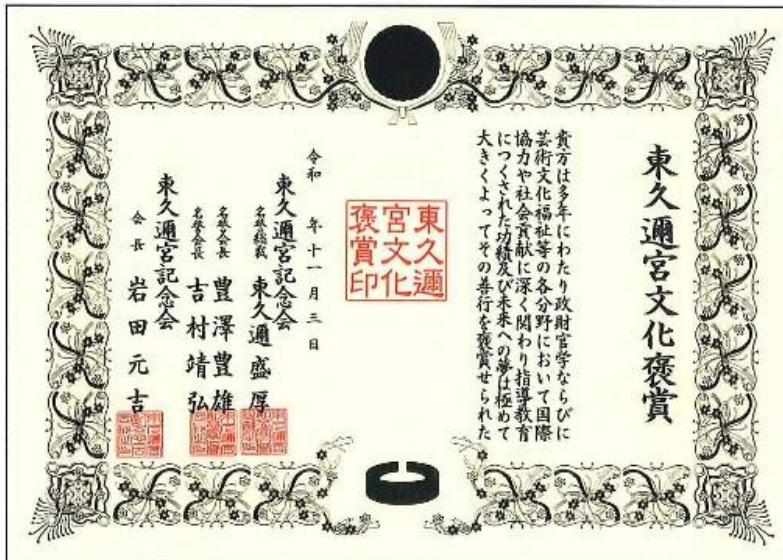 東久邇宮文化褒賞
貴方は多年にわたり政財官学ならびに
芸術文化福祉等の各分野において国際
協力や社会貢献に深く関わり指導教育
につくされた功績及び未来への夢は極めて
大きくよってその善行を褒賞せられた
東久邇
宮文化
褒賞印
令和　年十一月三日
東久邇宮記念会
名誉総裁　東久邇盛厚
名誉会長　豊澤豊雄
名誉会長　吉村靖弘
東久邇宮記念会
会長　岩田元吉